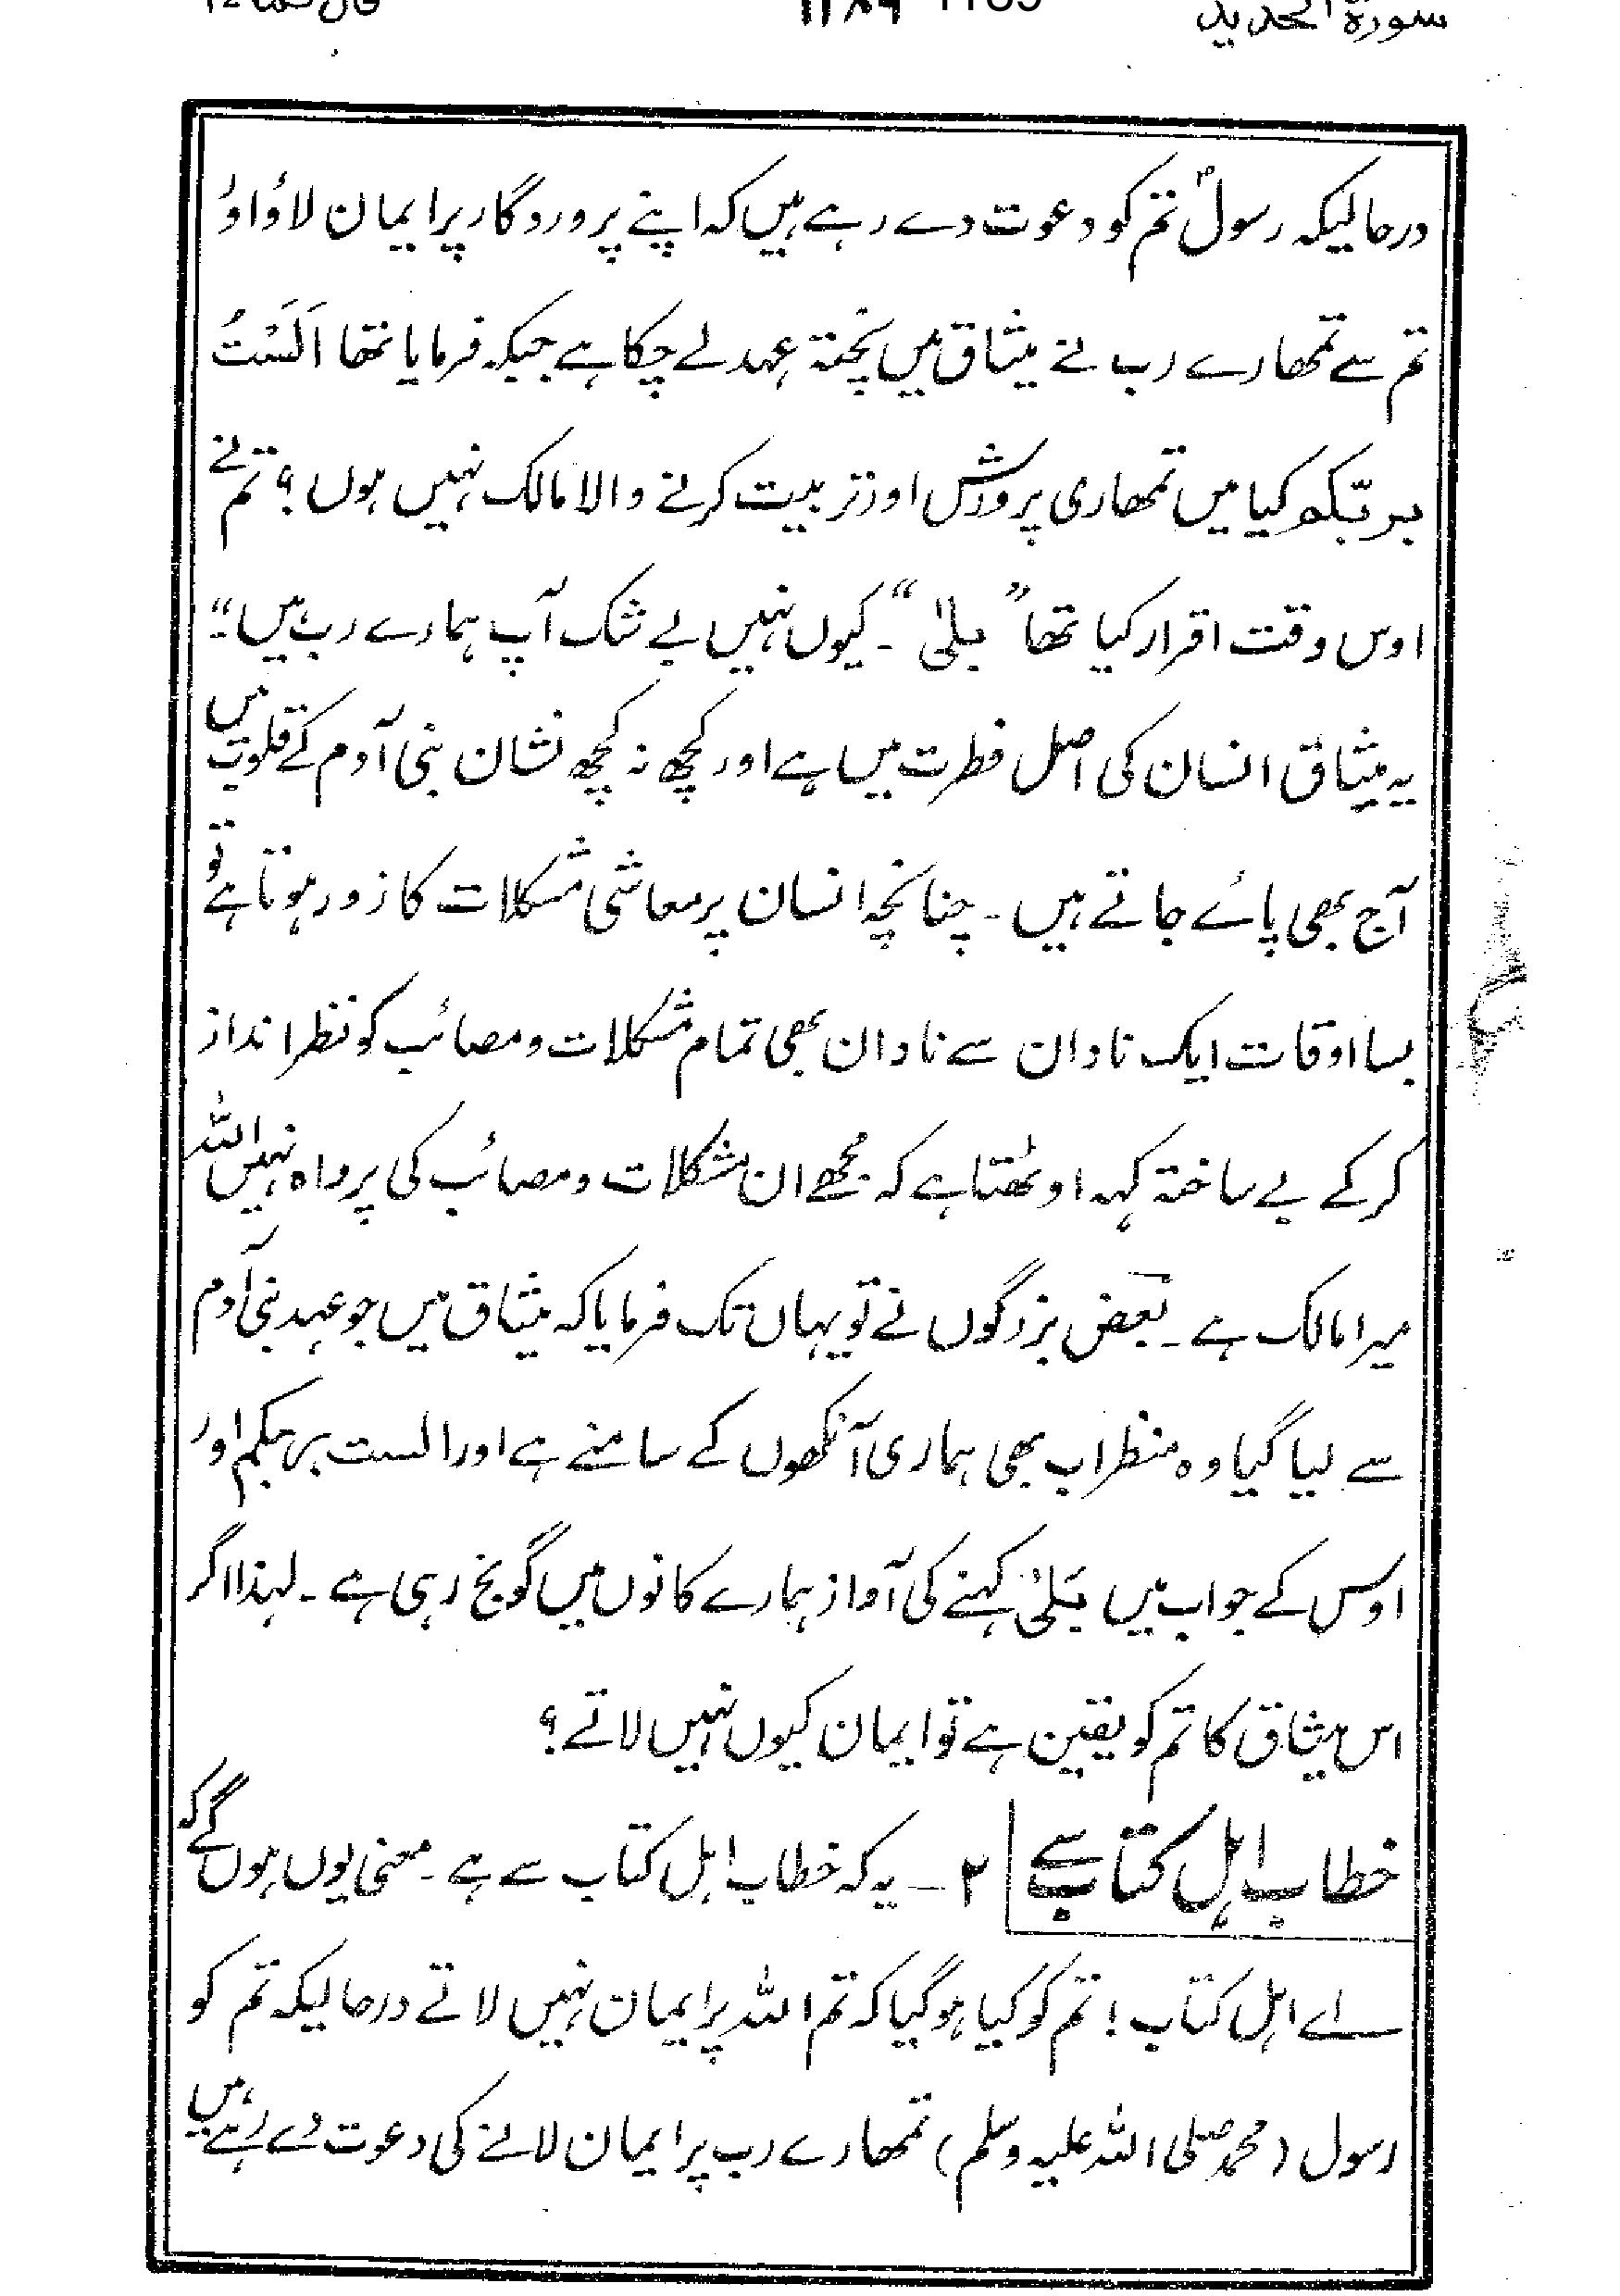 سورۃ الحدید ۱۱۸۹ 1189
درحالیکہ رسولؐ تم کو دعوت دے رہے ہیں کہ اپنے پروردگار پر ایمان لاؤ اور
تم سے تمھارے رب نے میثاق میں پختہ عہد لے چکا ہے جبکہ فرمایا تھا اَلَسْتُ
بربّکم کیا میں تمھاری پرورش اور تربیت کرنے والا مالک نہیں ہوں؟ تم نے
اوس وقت اقرار کیا تھا ”بلیٰ“۔ کیوں نہیں بے شک آپ ہمارے رب ہیں“۔
یہ میثاق انسان کی اصل فطرت میں ہے اور کچھ نہ کچھ نشان بنی آدم کے قلوب میں
آج بھی پائے جاتے ہیں۔ چنانچہ انسان پر معاشی مشکلات کا زور ہوتا ہے تو
بسا اوقات ایک نادان سے نادان بھی تمام مشکلات و مصائب کو نظر انداز
کر کے بے ساختہ کہہ اوٹھتا ہے کہ مجھے ان مشکلات و مصائب کی پرواہ نہیں اللہ
میرا مالک ہے۔ بعض بزرگوں نے تو یہاں تک فرمایا کہ میثاق میں جو عہد بنی آدم
سے لیا گیا وہ منظر اب بھی ہماری آنکھوں کے سامنے ہے اور الست بربکم اور
اوس کے جواب میں بَلیٰ کہنے کی آواز ہمارے کانوں میں گونج رہی ہے۔ لہذا اگر
اس میثاق کا تم کو یقین ہے تو ایمان کیوں نہیں لاتے؟
خطاب اہل کتاب سے ۲۔ یہ کہ خطاب اہل کتاب سے ہے۔ معنی یوں ہوں گے کہ
اے اہل کتاب! تم کو کیا ہوگیا کہ تم اللہ پر ایمان نہیں لاتے درحالیکہ تم کو
رسول (محمد صلی اللہ علیہ وسلم) تمھارے رب پر ایمان لانے کی دعوت دے رہے ہیں